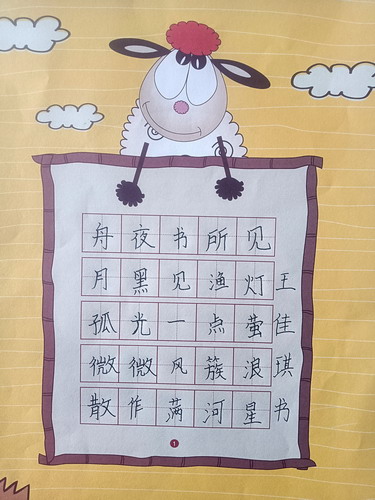 舟夜书所见
月黑见渔灯
孤光一点萤
微微风簇浪
散作满河星
王佳琪书
1